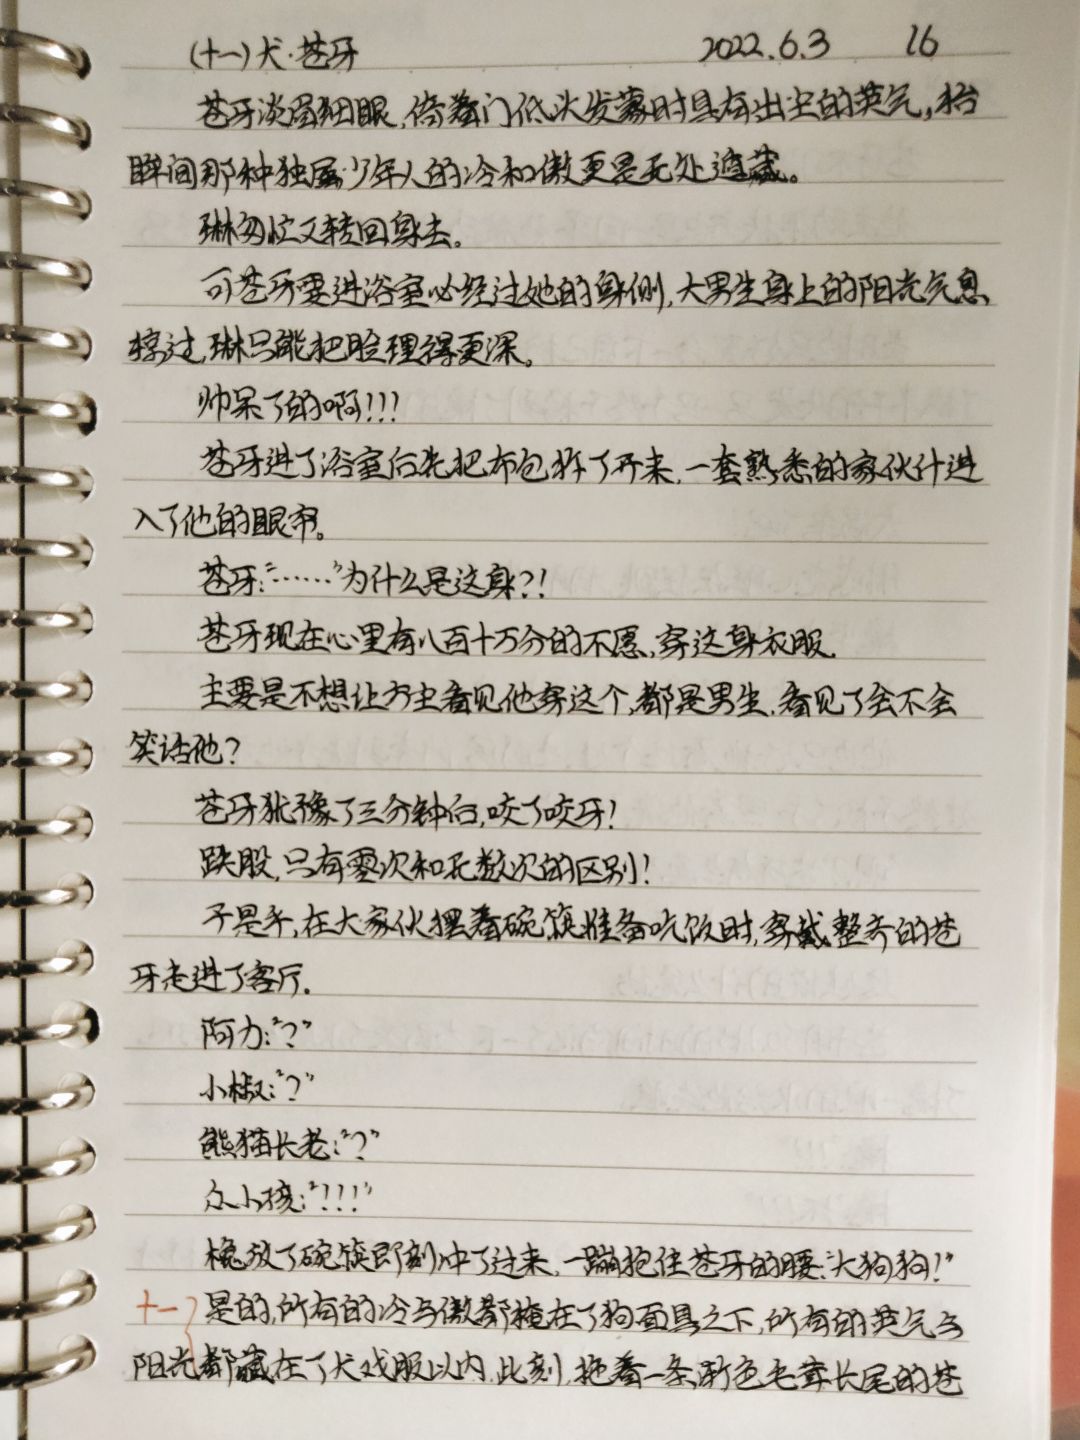 (十一)犬·苍牙 2022.6.3 16
苍牙淡眉细眼,倚着门低头发雾时具有出尘的英气,抬
眸间那种独属少年人的冷和傲更是无处遮藏。
琳匆忙又转回身去。
可苍牙要进浴室必经过她的身侧,大男生身上的阳光气息
掠过,琳只能把脸埋得更深。
帅呆了的啊!!!
苍牙进了浴室后先把布包拆了开来,一套熟悉的家伙什进
入了他的眼帘。
苍牙:“······”为什么是这身?!
苍牙现在心里有八百十万分的不愿,穿这身衣服.
主要是不想让方士看见他穿这个,都是男生,看见了会不会
笑话他?
苍牙犹豫了三分钟后,咬了咬牙!
跌股,只有零次和无数次的区别!
于是乎,在大家伙摆着碗筷准备吃饭时,穿戴整齐的苍
牙走进了客厅.
阿力:“?”
小椒:“?”
熊猫长老:“?”
众小孩:“!!!”
槐放了碗筷即刻冲了过来,一蹦抱住苍牙的腰:“大狗狗!”
十一 是的,所有的冷与傲都掩在了狗面具之下,所有的英气与
阳光都藏在了犬戏服以内,此刻,拖着一条渐色毛茸长尾的苍